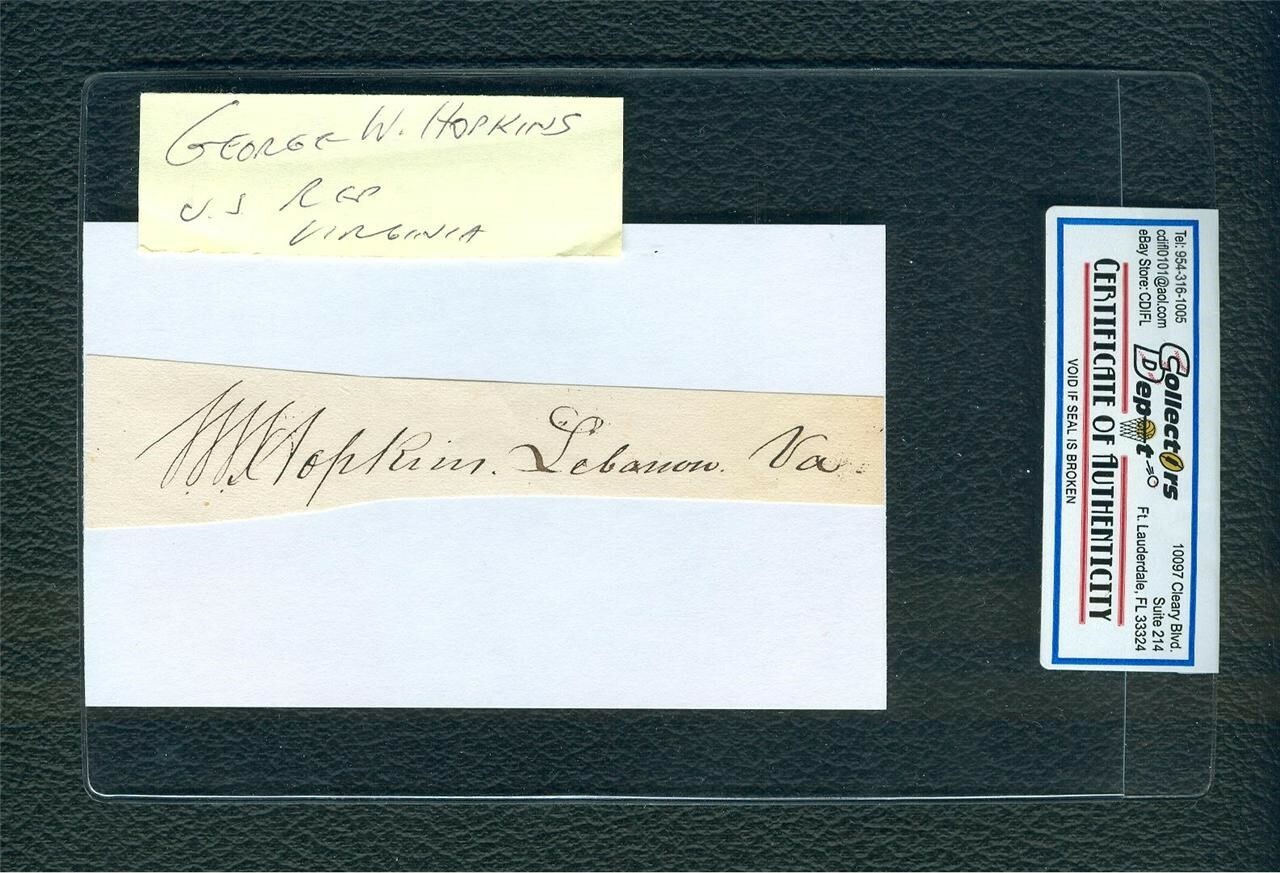 GEORGE W. HOPKINS
U.S REP
VIRGINIA
Hopkins. Lebanon. Va.
Tel: 954-316-1005
cdifl0101@aol.com
eBay Store: CDIFL
Collectors
Depot
10097 Cleary Blvd.
Suite 214
Ft. Lauderdale, FL 33324
CERTIFICATE OF AUTHENTICITY
VOID IF SEAL IS BROKEN